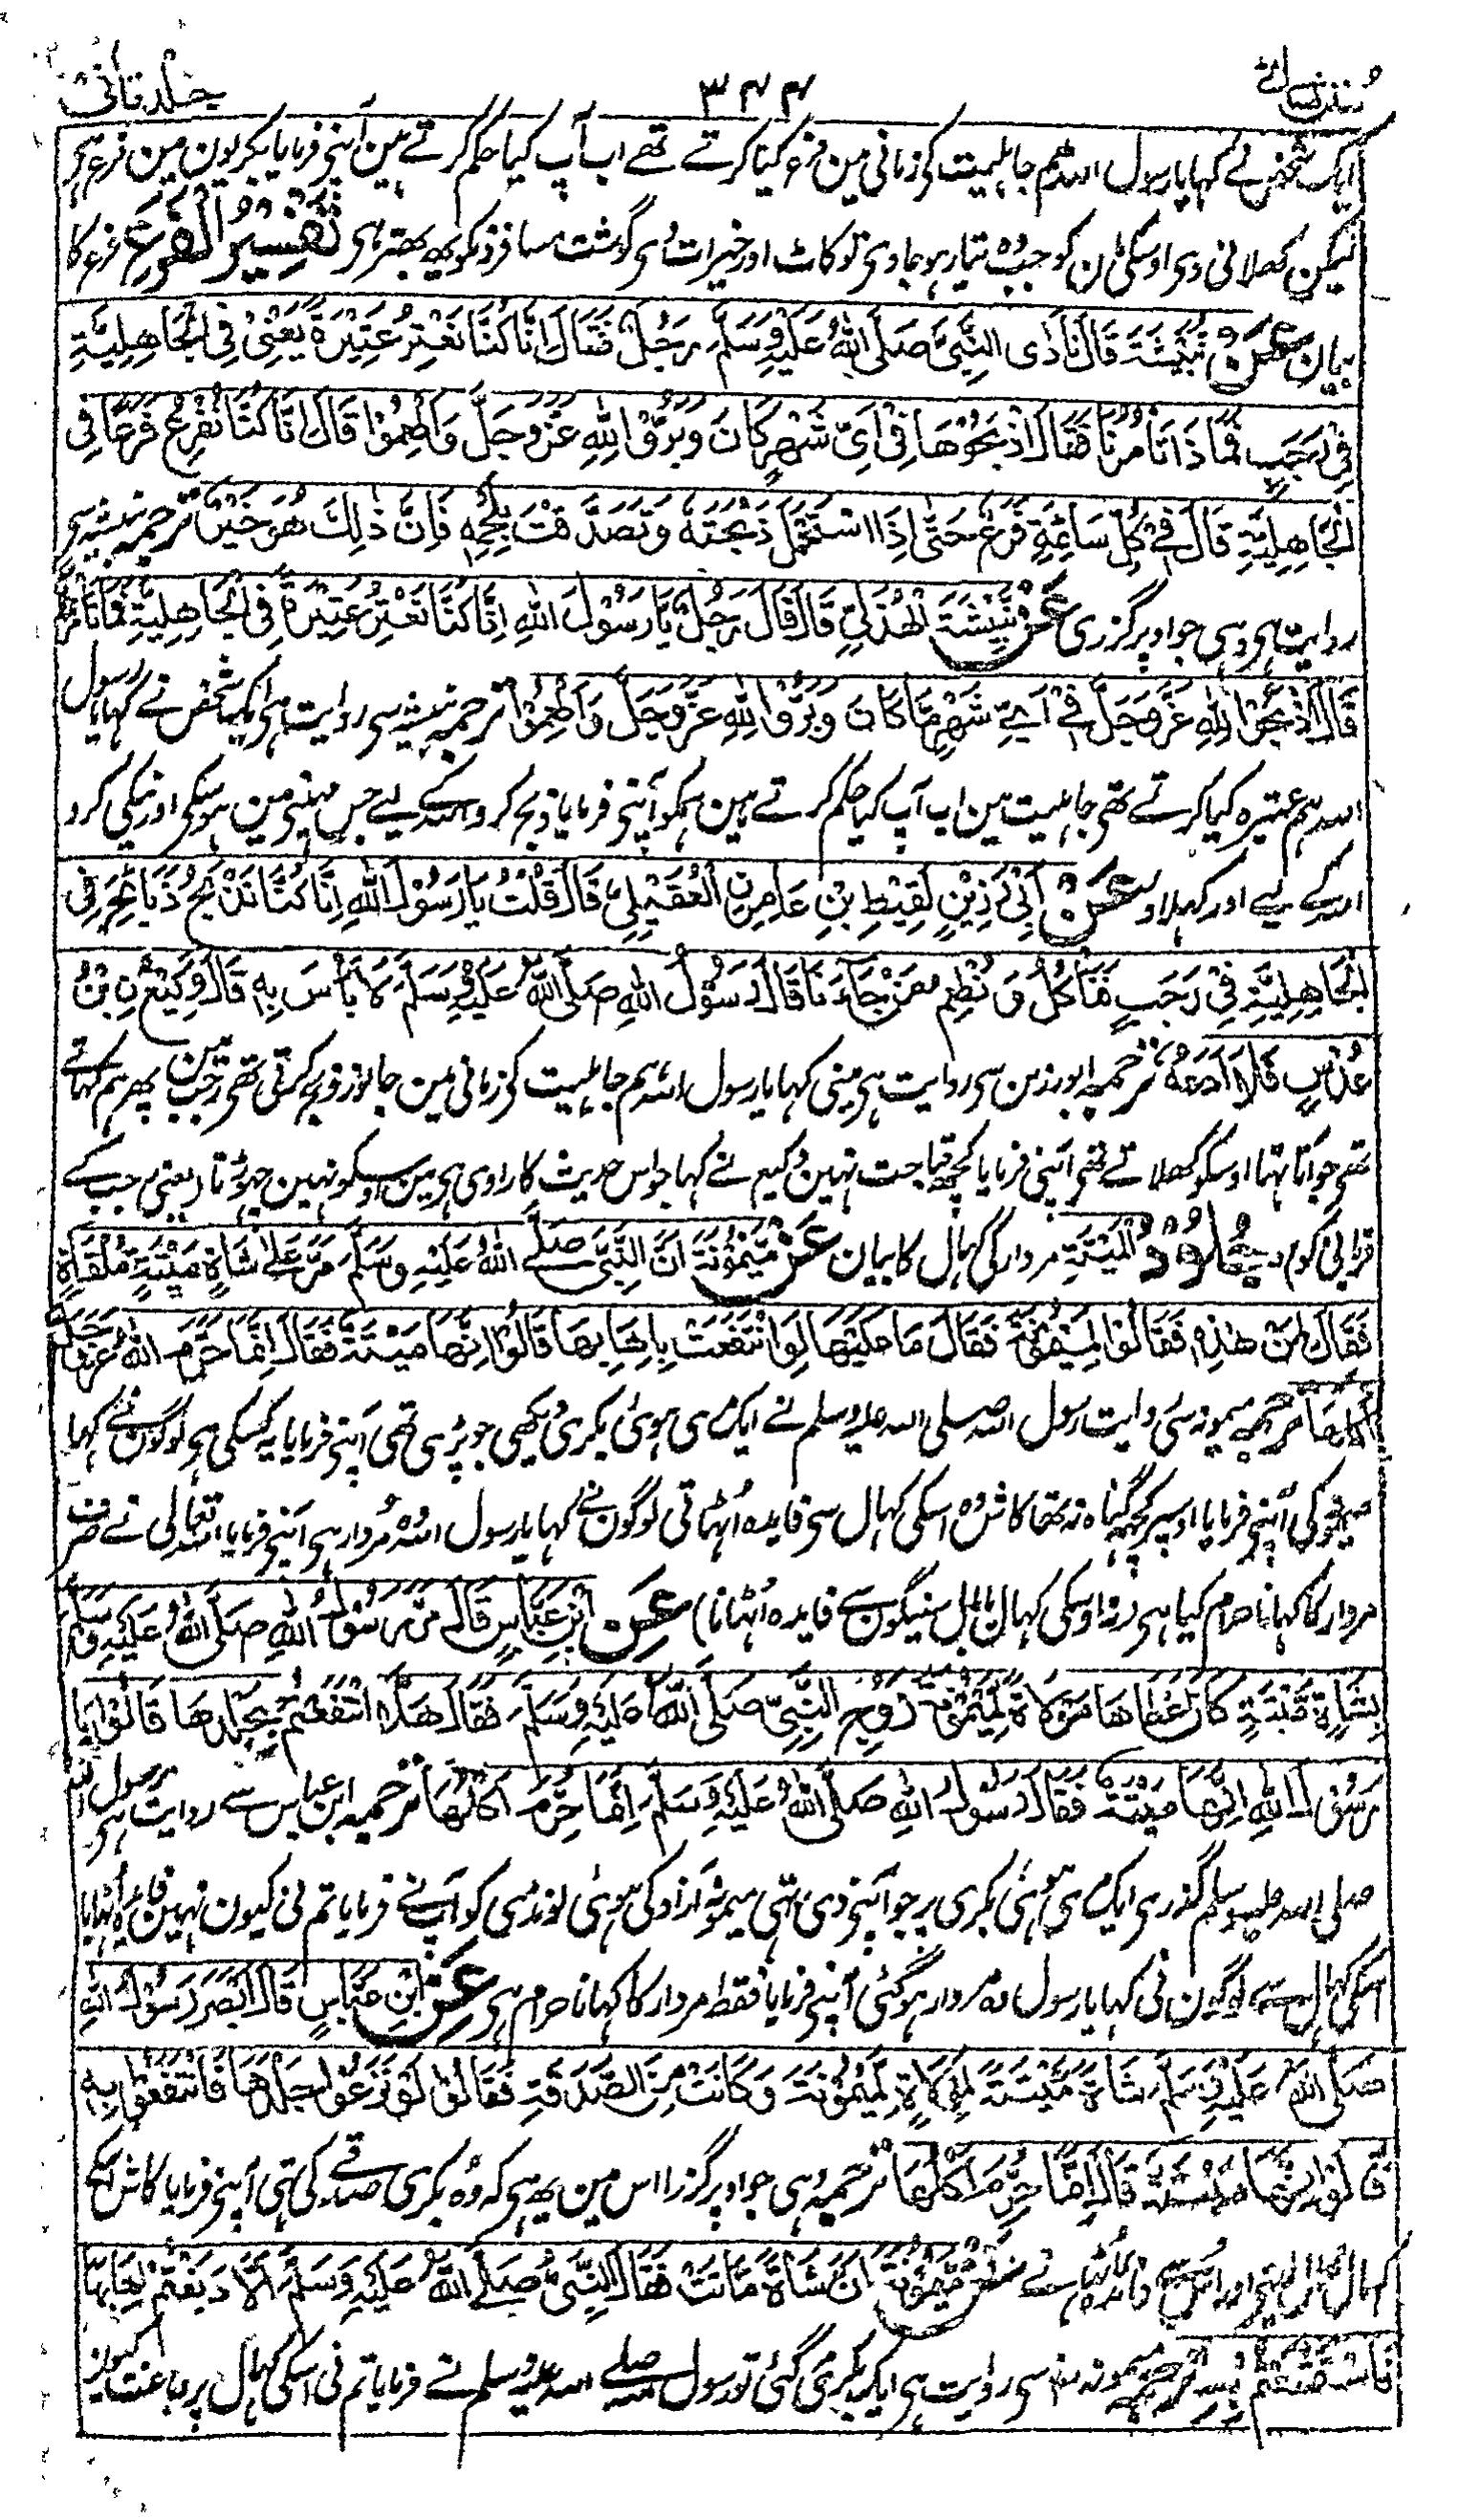 سنن نسائی ۳۴۴ جلد ثانی
ایک شخص نے کہا یا رسول اللہ ہم جاہلیت کی زمانی مین فرع کیا کرتے تھے اب آپ کیا حکم کرتے ہین آپنی فرمایا بکریون مین فرع ہی
لیکن کھلائی دی اوسکی مان کو جب وہ تیار ہو جاوی تو کاٹ اور خیرات اسی گوشت مسافرونکو یہ بہتر ہی تَفْسِیْرُ الْفَرَعِ فرع کا
بیان عَنْ نُبَیْشَةَ قَالَ نَادَی النَّبِیَّ صَلَّی اللهُ عَلَیْهِ وَسَلَّمَ رَجُلٌ فَقَالَ اِنَّا کُنَّا نَعْتِرُ عَتِیْرَةً یَعْنِیْ فِی الْجَاهِلِیَّةِ
فِیْ رَجَبٍ فَمَا ذَا تَاْمُرُنَا فَقَالَ اذْبَحُوْهَا فِیْ اَیِّ شَهْرٍ کَانَ وَبَرُّوْا لِلّٰهِ عَزَّوَجَلَّ وَاَطْعِمُوْا قَالَ اِنَّا کُنَّا نُفْرِعُ فَرَعًا فِی
الْجَاهِلِیَّةِ قَالَ فِیْ کُلِّ سَائِمَةٍ فَرَعٌ حَتّٰی اِذَا اسْتَحْمَلَ ذَبَحْتَهٗ وَتَصَدَّقْتَ بِلَحْمِهٖ فَاِنَّ ذٰلِكَ هُوَ خَیْرٌ ترجمہ نبیشہ سی
روایت ہی وہی جو اوپر گزری عَنْ نُبَیْشَةَ الْهُذَلِیِّ قَالَ قَالَ رَجُلٌ یَا رَسُوْلَ اللهِ اِنَّا کُنَّا نَعْتِرُ عَتِیْرَةً فِی الْجَاهِلِیَّةِ فَمَا تَاْمُرُنَا
قَالَ اذْبَحُوْا لِلّٰهِ عَزَّوَجَلَّ فِیْ اَیِّ شَهْرٍ مَّا کَانَ وَبَرُّوْا لِلّٰهِ عَزَّوَجَلَّ وَاَطْعِمُوْا ترجمہ نبیشہ سی روایت ہی ایک شخص نے کہا یا رسول
اللہ ہم عتیرہ کیا کرتے تھی جاہلیت مین اب آپ کیا حکم کرتے ہین ہمکو آپنی فرمایا ذبح کرو اللہ کے لیے جس مہینی مین ہوسکی اور نیکی کرو
اللہ کے لیے اور کہلاو عَنْ اَبِیْ رَزِیْنٍ لَقِیْطِ بْنِ عَامِرِنِ الْعُقَیْلِیِّ قَالَ قُلْتُ یَا رَسُوْلَ اللهِ اِنَّا کُنَّا نَذْبَحُ ذَبَائِحَ فِی
الْجَاهِلِیَّةِ فِیْ رَجَبٍ فَنَاْکُلُ وَنُطْعِمُ مَنْ جَآءَنَا قَالَ رَسُوْلُ اللهِ صَلَّی اللهُ عَلَیْهِ وَسَلَّمَ لَا بَاْسَ بِهٖ قَالَ وَکِیْعُ بْنُ
عُدُسٍ فَلَا اَدَعُهٗ ترجمہ ابو رزین سی روایت ہی مینی کہا یا رسول اللہ ہم جاہلیت کی زمانی مین جانور ذبح کرتی تھی رجب مین پھر ہم کہاتے
تھی جو آتا تہا اوسکو کھلاتے تھی آپنی فرمایا کچھ قباحت نہین وکیع نے کہا جو اس حدیث کا راوی ہی مین اوسکو نہین چھوڑتا (یعنی رجب کے
قربانی کو) جُلُوْدُ الْمَیْتَةِ مردار کی کہال کا بیان عَنْ مَّیْمُوْنَةَ اَنَّ النَّبِیَّ صَلَّی اللهُ عَلَیْهِ وَسَلَّمَ مَرَّ عَلٰی شَاةٍ مَّیْتَةٍ مُلْقَاةٍ
فَقَالَ لِمَنْ هٰذِهٖ فَقَالُوْا لِمَیْمُوْنَةَ فَقَالَ مَا عَلَیْهَا لَوِ انْتَفَعَتْ بِاِهَابِهَا قَالُوْا اِنَّهَا مَیْتَةٌ فَقَالَ اِنَّمَا حَرَّمَ اللهُ عَزَّوَجَلَّ
اَکْلَهَا ترجمہ میمونہ سی روایت رسول اللہ صلی اللہ علیہ وسلم نے ایک مری ہوئی بکری دیکھی جو پڑی تھی آپنی فرمایا یہ کسکی ہی لوگون نے کہا
میمونہ کی آپنی فرمایا اوسپر کچھ گناہ نہ تھا کاش وہ اسکی کہال سی فایدہ اُٹھاتی لوگون نے کہا یا رسول اللہ وہ مردار ہی آپنی فرمایا اللہ تعالی نے صرف
مردار کا کہانا حرام کیا ہی (نہ اوسکی کہال بال سینگون سے فایدہ اُٹھانا) عَنِ ابْنِ عَبَّاسٍ قَالَ مَرَّ رَسُوْلُ اللهِ صَلَّی اللهُ عَلَیْهِ وَسَلَّمَ
بِشَاةٍ مَّیْتَةٍ کَانَ اَعْطَاهَا مَوْلَاةً لِّمَیْمُوْنَةَ زَوْجِ النَّبِیِّ صَلَّی اللهُ عَلَیْهِ وَسَلَّمَ فَقَالَ هَلَّا انْتَفَعْتُمْ بِجِلْدِهَا قَالُوْا یَا
رَسُوْلَ اللهِ اِنَّهَا مَیْتَةٌ فَقَالَ رَسُوْلُ اللهِ صَلَّی اللهُ عَلَیْهِ وَسَلَّمَ اِنَّمَا حُرِّمَ اَکْلُهَا ترجمہ ابن عباس سے روایت ہی رسول اللہ
صلی اللہ علیہ وسلم گذری ایک مری ہوئی بکری پر جو آپنی دی تہی میمونہ آزاد کی ہوئی لونڈی کو آپ نے فرمایا تم نی کیون نہین فایدہ اُٹہایا
اسکی کہال سے لوگون نی کہا یا رسول وہ مردار ہوگئی آپنی فرمایا فقط مردار کا کہانا حرام ہی عَنِ ابْنِ عَبَّاسٍ قَالَ اَبْصَرَ رَسُوْلُ اللهِ
صَلَّی اللهُ عَلَیْهِ وَسَلَّمَ شَاةً مَّیْتَةً لِمَوْلَاةٍ لِمَیْمُوْنَةَ وَکَانَتْ مِنَ الصَّدَقَةِ فَقَالَ لَوْ نَزَعُوْا جِلْدَهَا فَانْتَفَعُوْا بِهٖ
قَالُوْا اِنَّهَا مَیْتَةٌ قَالَ اِنَّمَا حُرِّمَ اَکْلُهَا ترجمہ وہی جو اوپر گزرا اس مین یہ ہی کہ وہ بکری صدقے کی تہی آپنی فرمایا کاش اسکی
کہال نکال لیتی اور اس سے فائدہ اُٹہاتے عَنْ مَّیْمُوْنَةَ اَنَّ شَاةً مَّاتَتْ فَقَالَ النَّبِیُّ صَلَّی اللهُ عَلَیْهِ وَسَلَّمَ اَلَّا دَبَغْتُمْ اِهَابَهَا
فَاسْتَمْتَعْتُمْ بِهٖ ترجمہ میمونہ سی روایت ہی ایک بکری مر گئی تو رسول اللہ صلی اللہ علیہ وسلم نے فرمایا تم نی اسکی کہال پر دباغت کیون